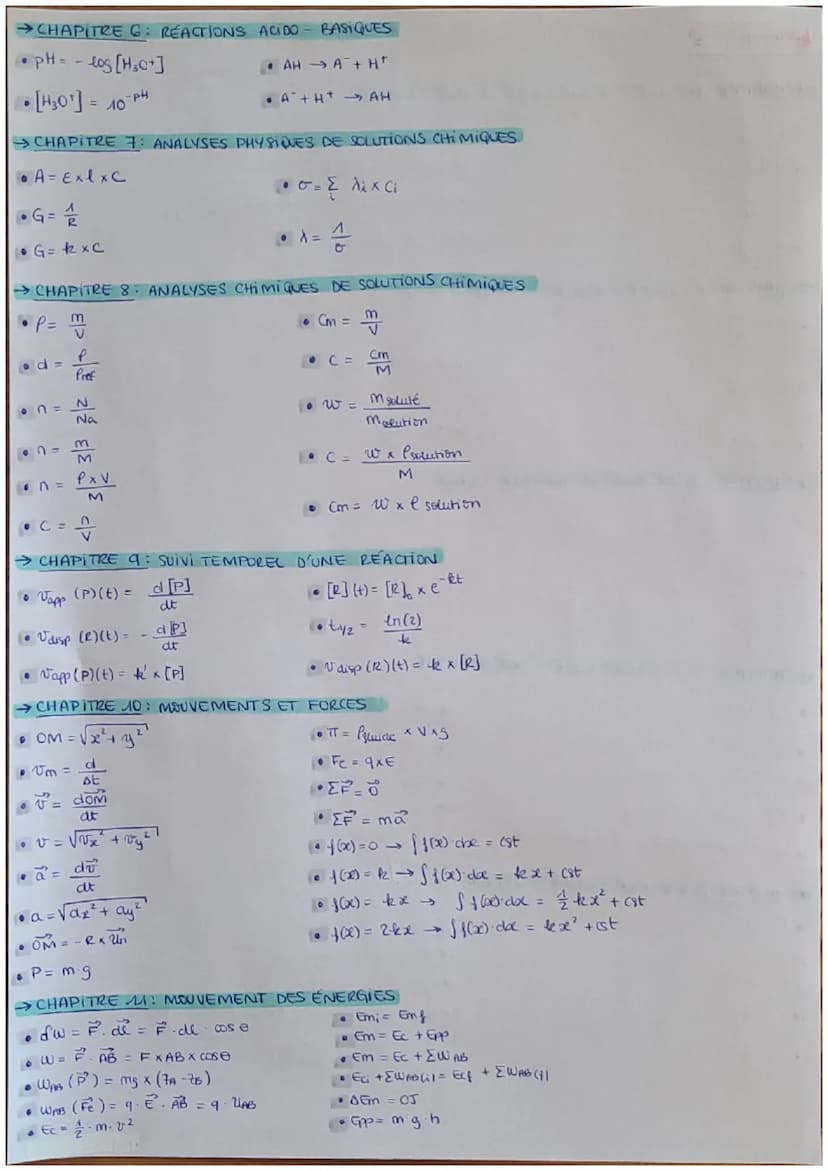 → CHAPITRE 6 : RÉACTIONS ACIDO - BASIQUES
• pH = - log [H₃O⁺]
• [H₃O⁺] = 10^-pH
• AH → A⁻ + H⁺
• A⁻ + H⁺ → AH
→ CHAPITRE 7 : ANALYSES PHYSIQUES DE SOLUTIONS CHIMIQUES
• A = ε x l x C
• G = 1/R
• G = k x C
• σ = Σ_i λi x Ci
• λ = 1/σ
→ CHAPITRE 8 : ANALYSES CHIMIQUES DE SOLUTIONS CHIMIQUES
• ρ = m/V
• d = ρ/ρref
• n = N/Na
• n = m/M
• n = (ρ x V)/M
• C = n/V
• Cm = m/V
• C = Cm/M
• w = m soluté / m solution
• C = (w x ρ solution)/M
• Cm = w x ρ solution
→ CHAPITRE 9 : SUIVI TEMPOREL D'UNE RÉACTION
• v_app (P)(t) = d[P]/dt
• v_disp (R)(t) = - d[P]/dt
• v_app (P)(t) = k' x [P]
• [R](t) = [R]₀ x e^-kt
• t_1/2 = ln(2)/k
• v_disp (R)(t) = k x [R]
→ CHAPITRE 10 : MOUVEMENTS ET FORCES
• OM = √(x² + y²)
• vm = d/Δt
• v⃗ = dOM⃗/dt
• v = √(vx² + vy²)
• a⃗ = dv⃗/dt
• a = √(ax² + ay²)
• OM⃗ = - R x Un⃗
• P = m·g
• π = ρfluide x V x g
• Fe = q x E
• ΣF⃗ = 0⃗
• ΣF⃗ = ma⃗
• f(x) = 0 → ∫ f(x)·dx = cst
• f(x) = k → ∫ f(x)·dx = kx + cst
• f(x) = kx → ∫ f(x)·dx = 1/2 kx² + cst
• f(x) = 2kx → ∫ f(x)·dx = kx² + cst
→ CHAPITRE 11 : MOUVEMENT DES ÉNERGIES
• δw = F⃗ · dl⃗ = F⃗ · dl · cos θ
• w = F⃗ · AB⃗ = F x AB x cos θ
• W_AB (P⃗) = mg x (zA - zB)
• W_AB (Fe⃗) = q · E⃗ · AB⃗ = q · U_AB
• Ec = 1/2 · m · v²
• Emi = Emf
• Em = Ec + Epp
• Em = Ec + ΣW AB
• Eci + ΣW AB(i) = Ecf + ΣW AB(f)
• ΔEm = 0J
• Epp = m·g·h